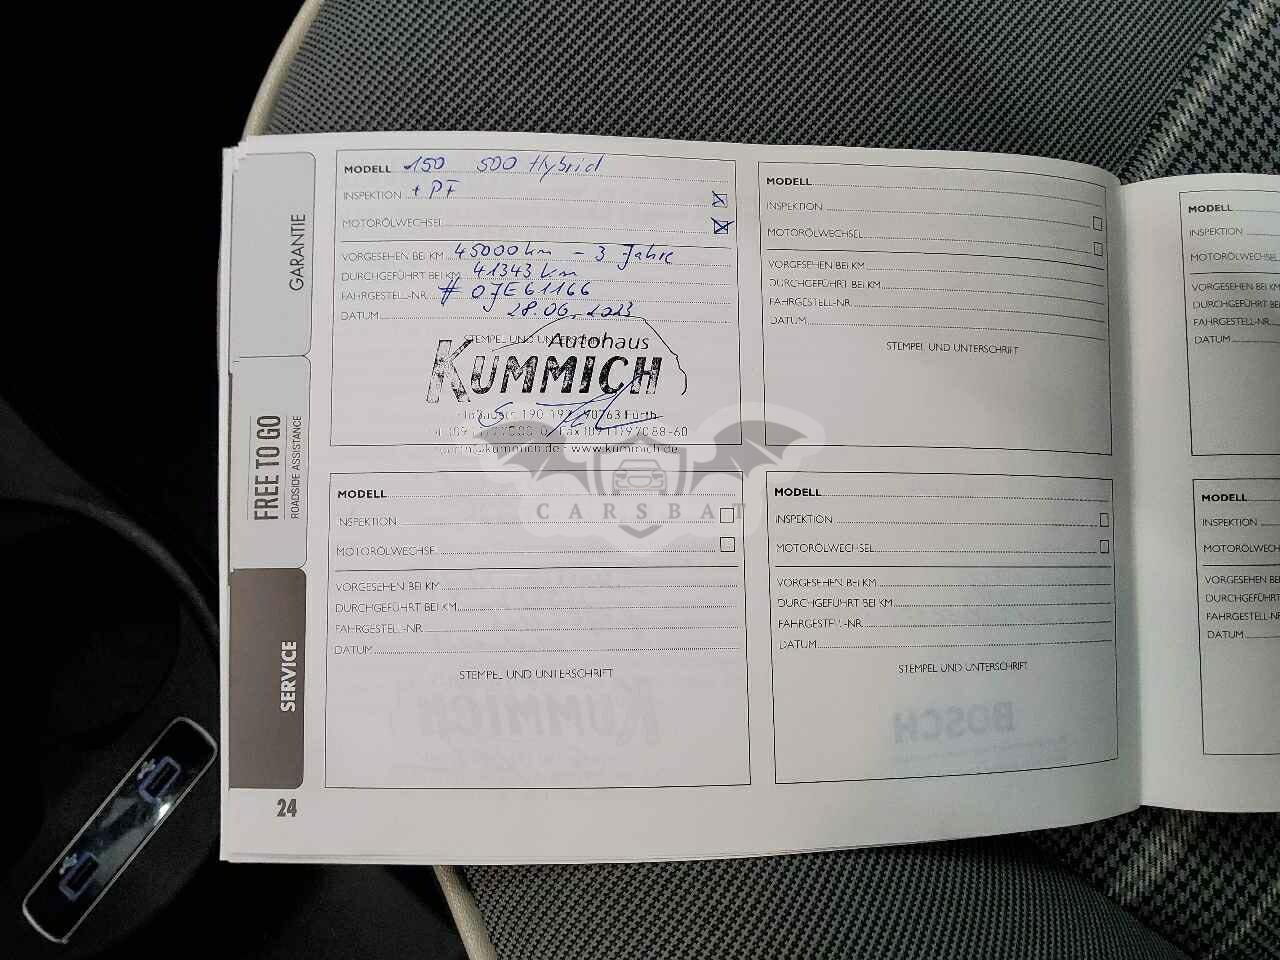 GARANTIE
FREE TO GO
ROADSIDE ASSISTANCE
SERVICE
24
MODELL 150 500 Hybrid
INSPEKTION + PF
MOTORÖLWECHSEL
VORGESEHEN BEI KM 45000 km - 3 Jahre
DURCHGEFÜHRT BEI KM 41343 km
FAHRGESTELL-NR. # 07E61166
DATUM 28.06.2023
STEMPEL UND UNTERSCHRIFT
Autohaus
KÜMMICH
190 192 90763 Fürth
Fax (0911) 97088-60
@kummich.de · www.kummich.de
MODELL
INSPEKTION
MOTORÖLWECHSEL
VORGESEHEN BEI KM
DURCHGEFÜHRT BEI KM
FAHRGESTELL-NR.
DATUM
STEMPEL UND UNTERSCHRIFT
MODELL
INSPEKTION
MOTORÖLWECHSEL
VORGESEHEN BEI KM
DURCHGEFÜHRT BEI KM
FAHRGESTELL-NR.
DATUM
MODELL
INSPEKTION
MOTORÖLWECHSEL
VORGESEHEN BEI KM
DURCHGEFÜHRT BEI KM
FAHRGESTELL-NR.
DATUM
STEMPEL UND UNTERSCHRIFT
KÜMMICH
MODELL
INSPEKTION
MOTORÖLWECHSEL
VORGESEHEN BEI KM
DURCHGEFÜHRT BEI KM
FAHRGESTELL-NR.
DATUM
STEMPEL UND UNTERSCHRIFT
BOSCH
MODELL
INSPEKTION
MOTORÖLWECH
VORGESEHEN BE
DURCHGEFÜHRT
FAHRGESTELL-NF
DATUM
CARSBAT